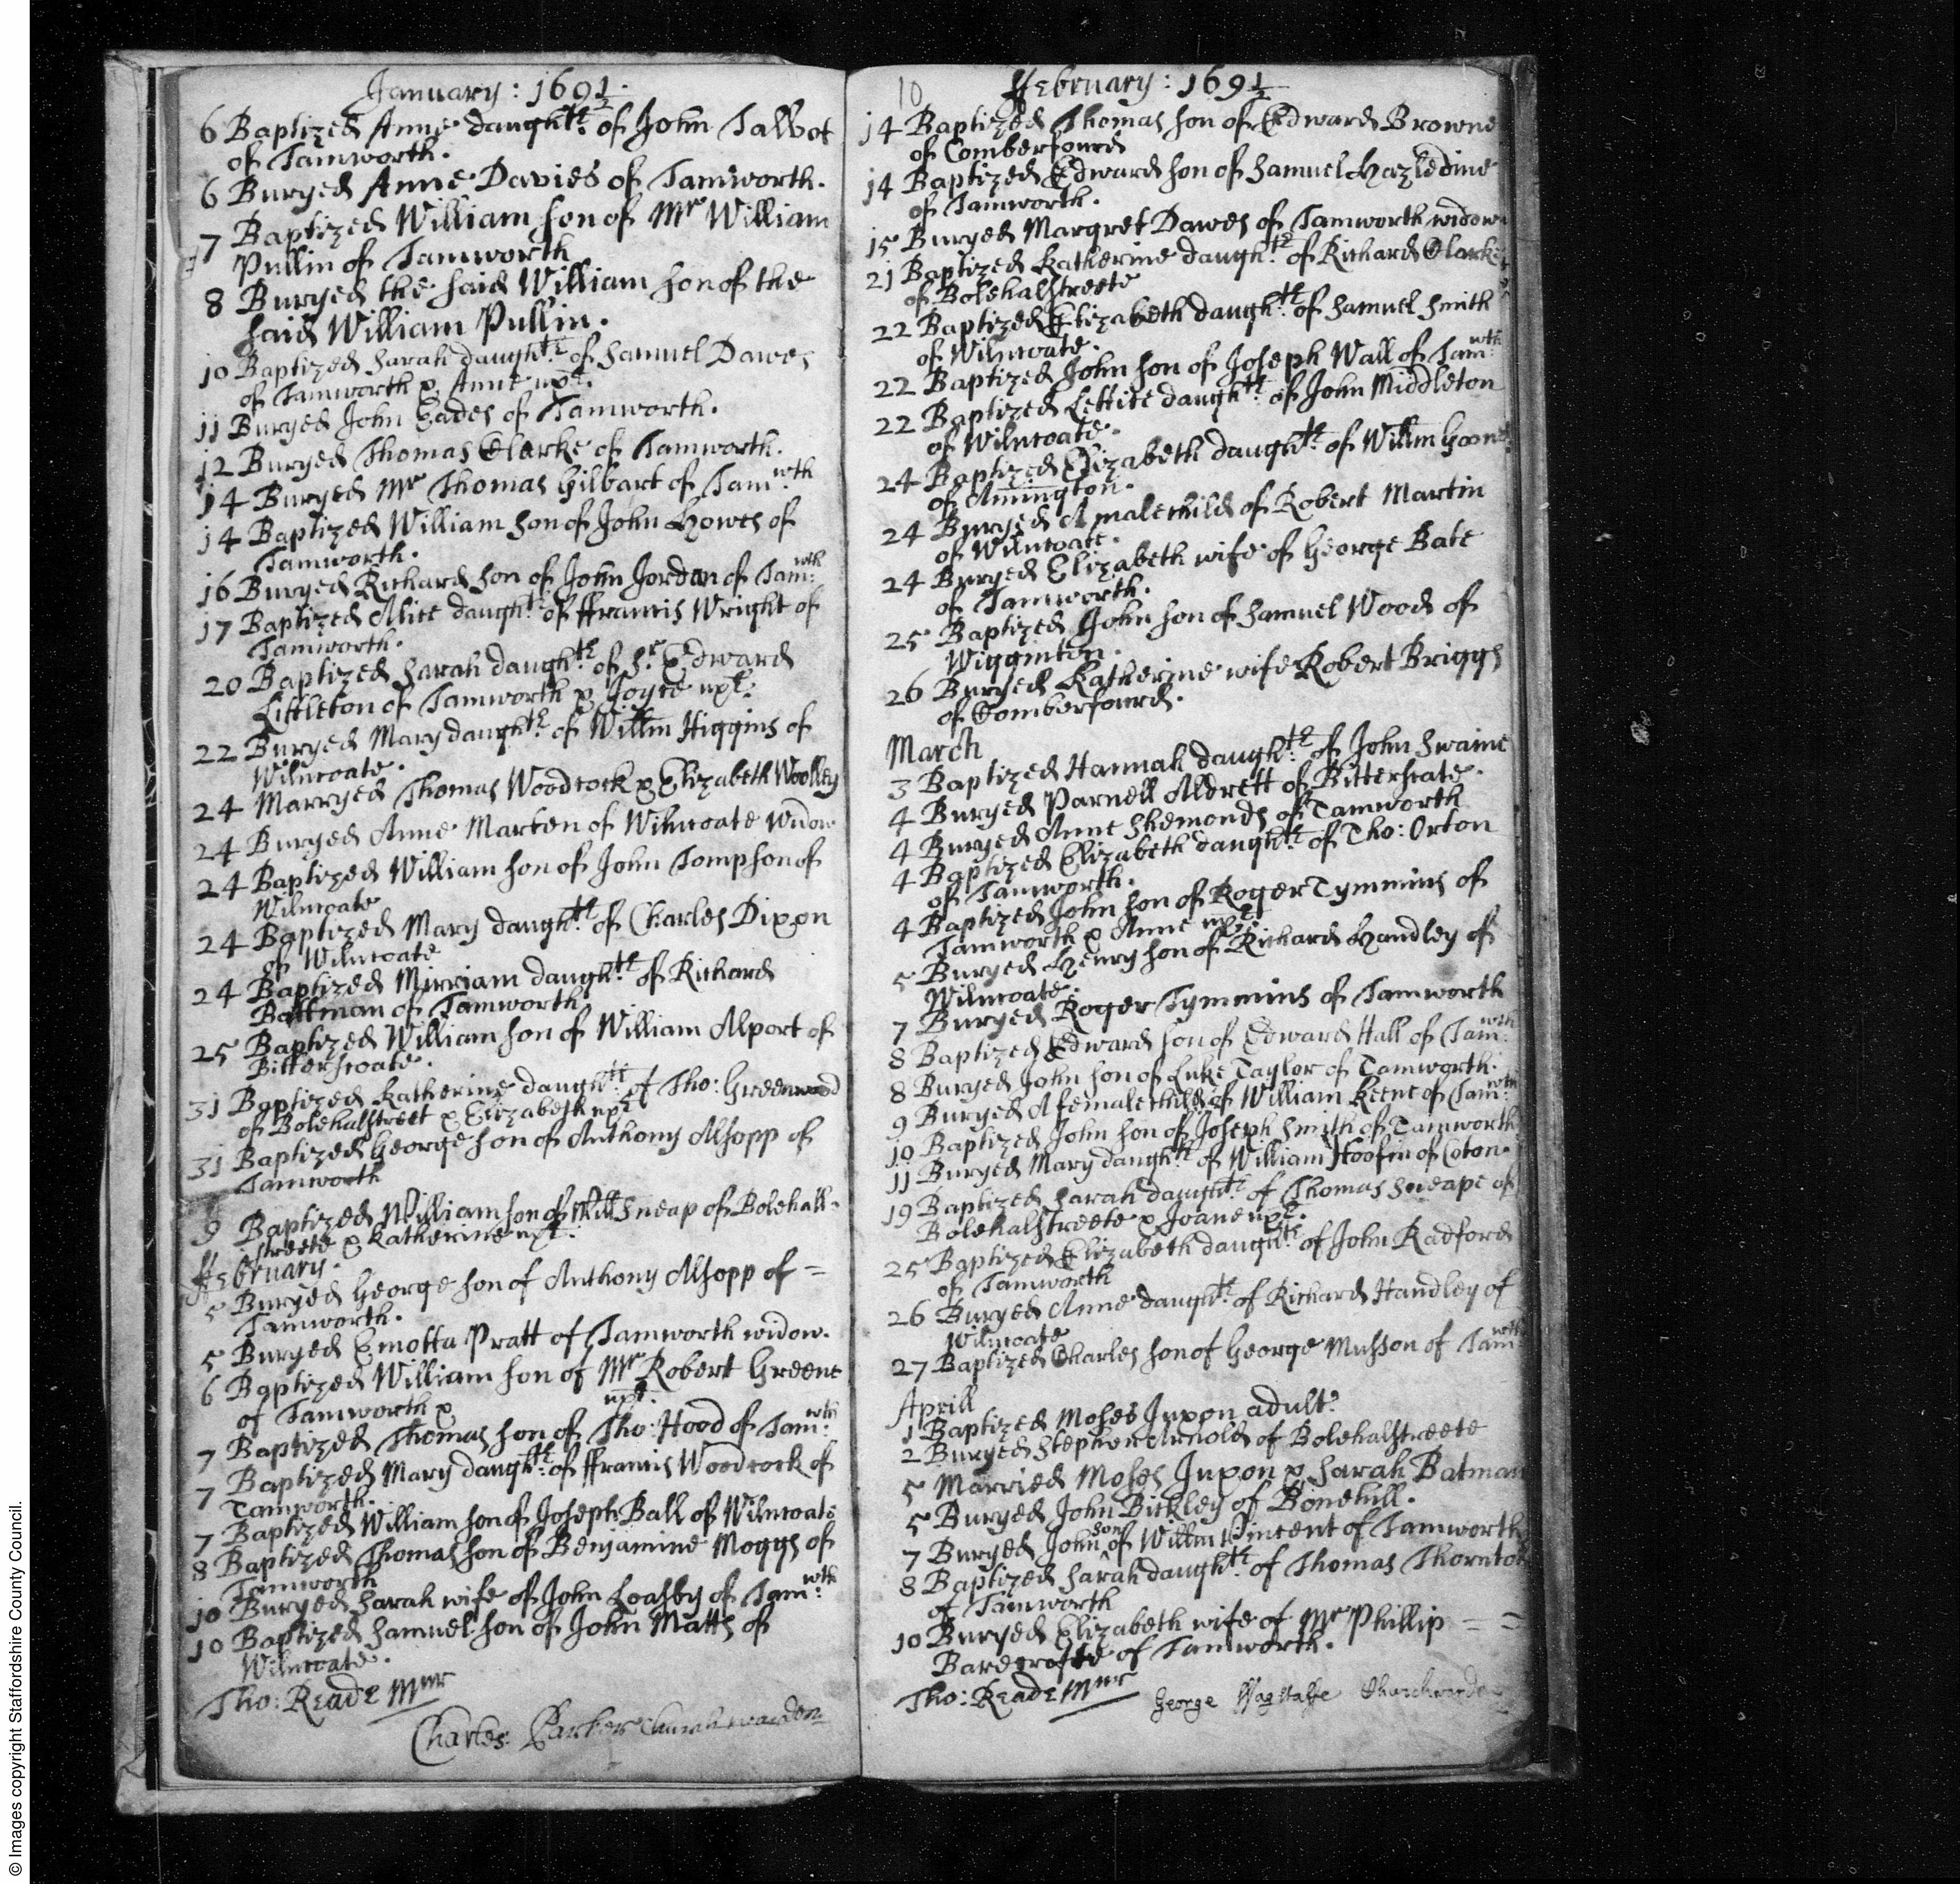 January : 169½.
6 Baptized Anne daughte.r of John Talbot
of Tamworth.
6 Buryed Anne Davies of Tamworth.
7 Baptized William son of Mr William
Pullin of Tamworth
8 Buryed the said William son of the
said William Pullin.
10 Baptized Sarah daughte.r of Samuel Dawes
of Tamworth & Anne uxr.
11 Buryed John Eades of Tamworth.
12 Buryed Thomas Clarke of Tamworth.
14 Buryed Mr Thomas Gilbart of Tamwth
14 Baptized William son of John Howes of
Tamworth.
16 Buryed Richard son of John Jordan of Tam:wth
17 Baptized Alice daughte.r of ffrancis Wright of
Tamworth.
20 Baptized Sarah daughte.r of Sr. Edward
Littleton of Tamworth & Joyce uxr.
22 Buryed Mary daughte.r of Willm Higgins of
Wilncoate.
24 Marryed Thomas Woodcock & Elizabeth Woolley
24 Buryed Anne Marten of Wilncoate widow
24 Baptized William son of John Tompson of
Wilncoate
24 Baptized Mary daughte.r of Charles Dixon
of Wilncoate
24 Baptized Mirriam daughte.r of Richard
Battman of Tamworth.
25 Baptized William son of William Alport of
Bitterscoate.
31 Baptized Katherine daughte.r of Tho: Greenwood
of Bolehalstreet & Elizabeth uxr
31 Baptized George son of Anthony Alsopp of
Tamworth
9 Baptized William son of Will Sneap of Bolehall-
streete & Katherine uxr.
ffebruary.
5 Buryed George son of Anthony Alsopp of =
Tamworth.
5 Buryed Emotta Pratt of Tamworth widow.
6 Baptized William son of Mr Robert Greene
of Tamworth & uxr.
7 Baptized Thomas son of Tho: Hood of Tam:wth
7 Baptized Mary daughte.r of ffrancis Woodcock of
Tamworth.
7 Baptized William son of Joseph Ball of Wilncoate
8 Baptized Thomas son of Benjamine Moggs of
Tamworth
10 Buryed Sarah wife of John Loasby of Tam:wth
10 Baptized Samuel son of John Matts of
Wilncoate.
Tho: Reade Mnr
Charles Parker Churchwarden
10
ffebruary : 169½
14 Baptized Thomas son of Edward Browne
of Comberfourd
14 Baptized Edward son of Samuel Hazledine
of Tamworth.
15 Buryed Margret Dawes of Tamworth widow
21 Baptized Katherine daughte.r of Richard Clarke
of Bolehalstreete
22 Baptized Elizabeth daughte.r of Samuel Smith
of Wilncoate.
22 Baptized John son of Joseph Wall of Tam:wth
22 Baptized Lettice daughte.r of John Middleton
of Wilncoate.
24 Baptized Elizabeth daughte.r of Willm
of Amington.
24 Buryed A malechild of Robert Martin
of Wilncoate.
24 Buryed Elizabeth wife of George Bate
of Tamworth.
25 Baptized John son of Samuel Wood of
Wigginton.
26 Buryed Katherine wife Robert Briggs
of Comberfourd.
March
3 Baptized Hannah daughte.r of John Swaine
4 Buryed Parnell Aldrett of Bitterscate.
4 Buryed Anne Shemonds of Tamworth
4 Baptized Elizabeth daughte.r of Tho: Orton
of Tamworth.
4 Baptized John son of Roger Tymmins of
Tamworth & Anne uxr.
5 Buryed Henry son of Richard Handley of
Wilncoate.
7 Buryed Roger Tymmins of Tamworth
8 Baptized Edward son of Edward Hall of Tam:wth
8 Buryed John son of Luke Taylor of Tamworth.
9 Buryed A femalechild of William Keene of Tam:wth
10 Baptized John son of Joseph Smith of Tamworth
11 Buryed Mary daughte.r of William of Coton.
19 Baptized Sarah daughte.r of Thomas Sneape of
Bolehalstreete & Joane uxr.
25 Baptized Elizabeth daughte.r of John Radford
of Tamworth
26 Buryed Anne daughte.r of Richard Handley of
Wilncoate
27 Baptized Charles son of George Musson of Tamwth
Aprill
1 Baptized Moses Juxon adult:
2 Buryed Stephen Arnold of Bolehalstreete
5 Married Moses Juxon & Sarah Batman
5 Buryed John Bickley of Bonehill.
7 Buryed John son of Willm Vincent of Tamworth
8 Baptized Sarah daughte.r of Thomas Thornton
of Tamworth
10 Buryed Elizabeth wife of Mr Phillip = =
Bardcrofte of Tamworth.
Tho: Reade Mnr
George Wagstaffe Churchwarden
© Images copyright Staffordshire County Council.